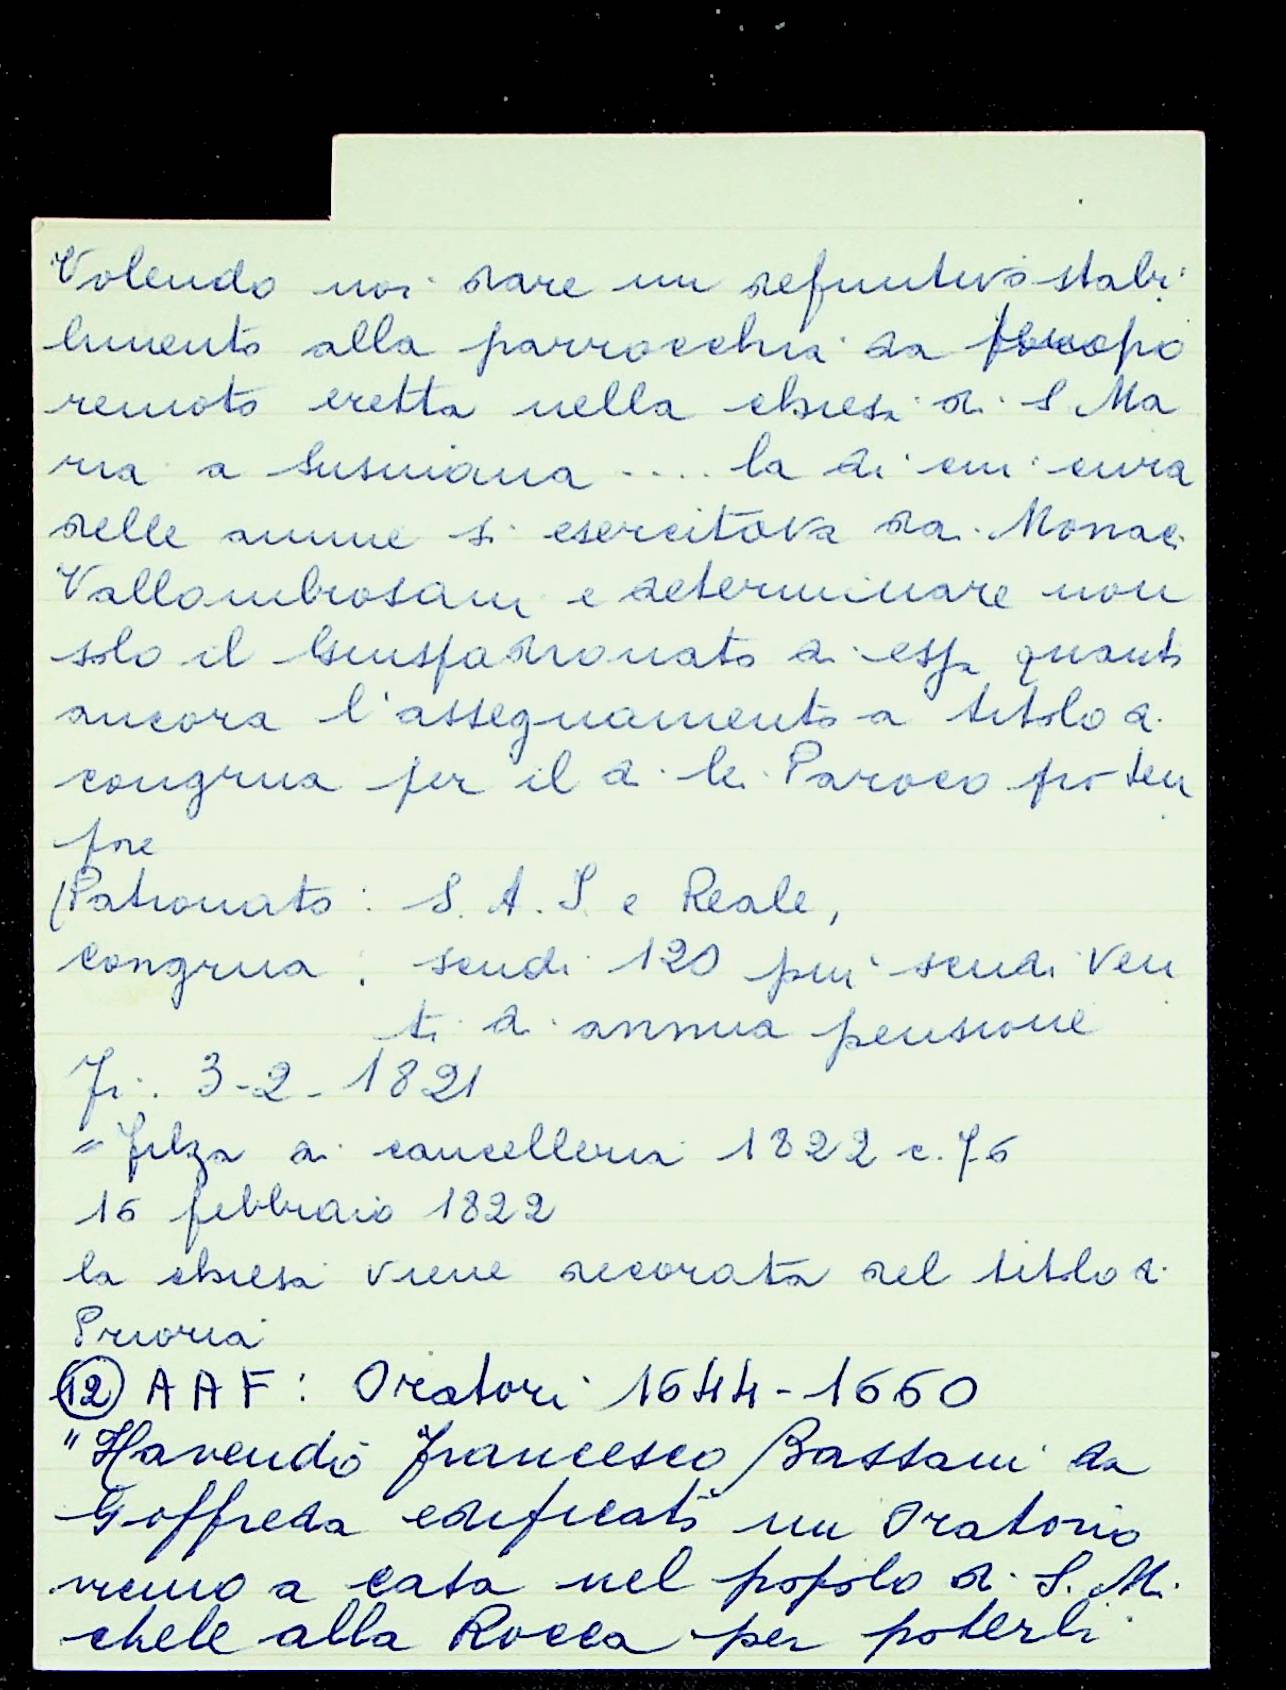 Volendo noi dare un definitivo stabi
limento alla parrocchia da tempo
remoto eretta nella chiesa di S. Ma
ria a Susinana .... la di cui cura
delle anime si esercitava da Monaci
Vallombrosani e determinare non
solo il Giuspadronato di essa quanto
ancora l'assegnamento a titolo di
congrua per il di lei Paroco pro tem
pore
Patronato : S. A. I. e Reale,
congrua : scudi 120 più scudi ven
ti di annua pensione
Fi. 3-2-1821
= Filza di cancelleria 1822 c. 76
16 febbraio 1822
la chiesa viene decorata del titolo di
Prioria
(12) AAF : Oratori 1644-1660
"Havendo Francesco Bassani da
Goffreda edificato un Oratorio
vicino a casa nel popolo di S. Mi
chele alla Rocca per poterli